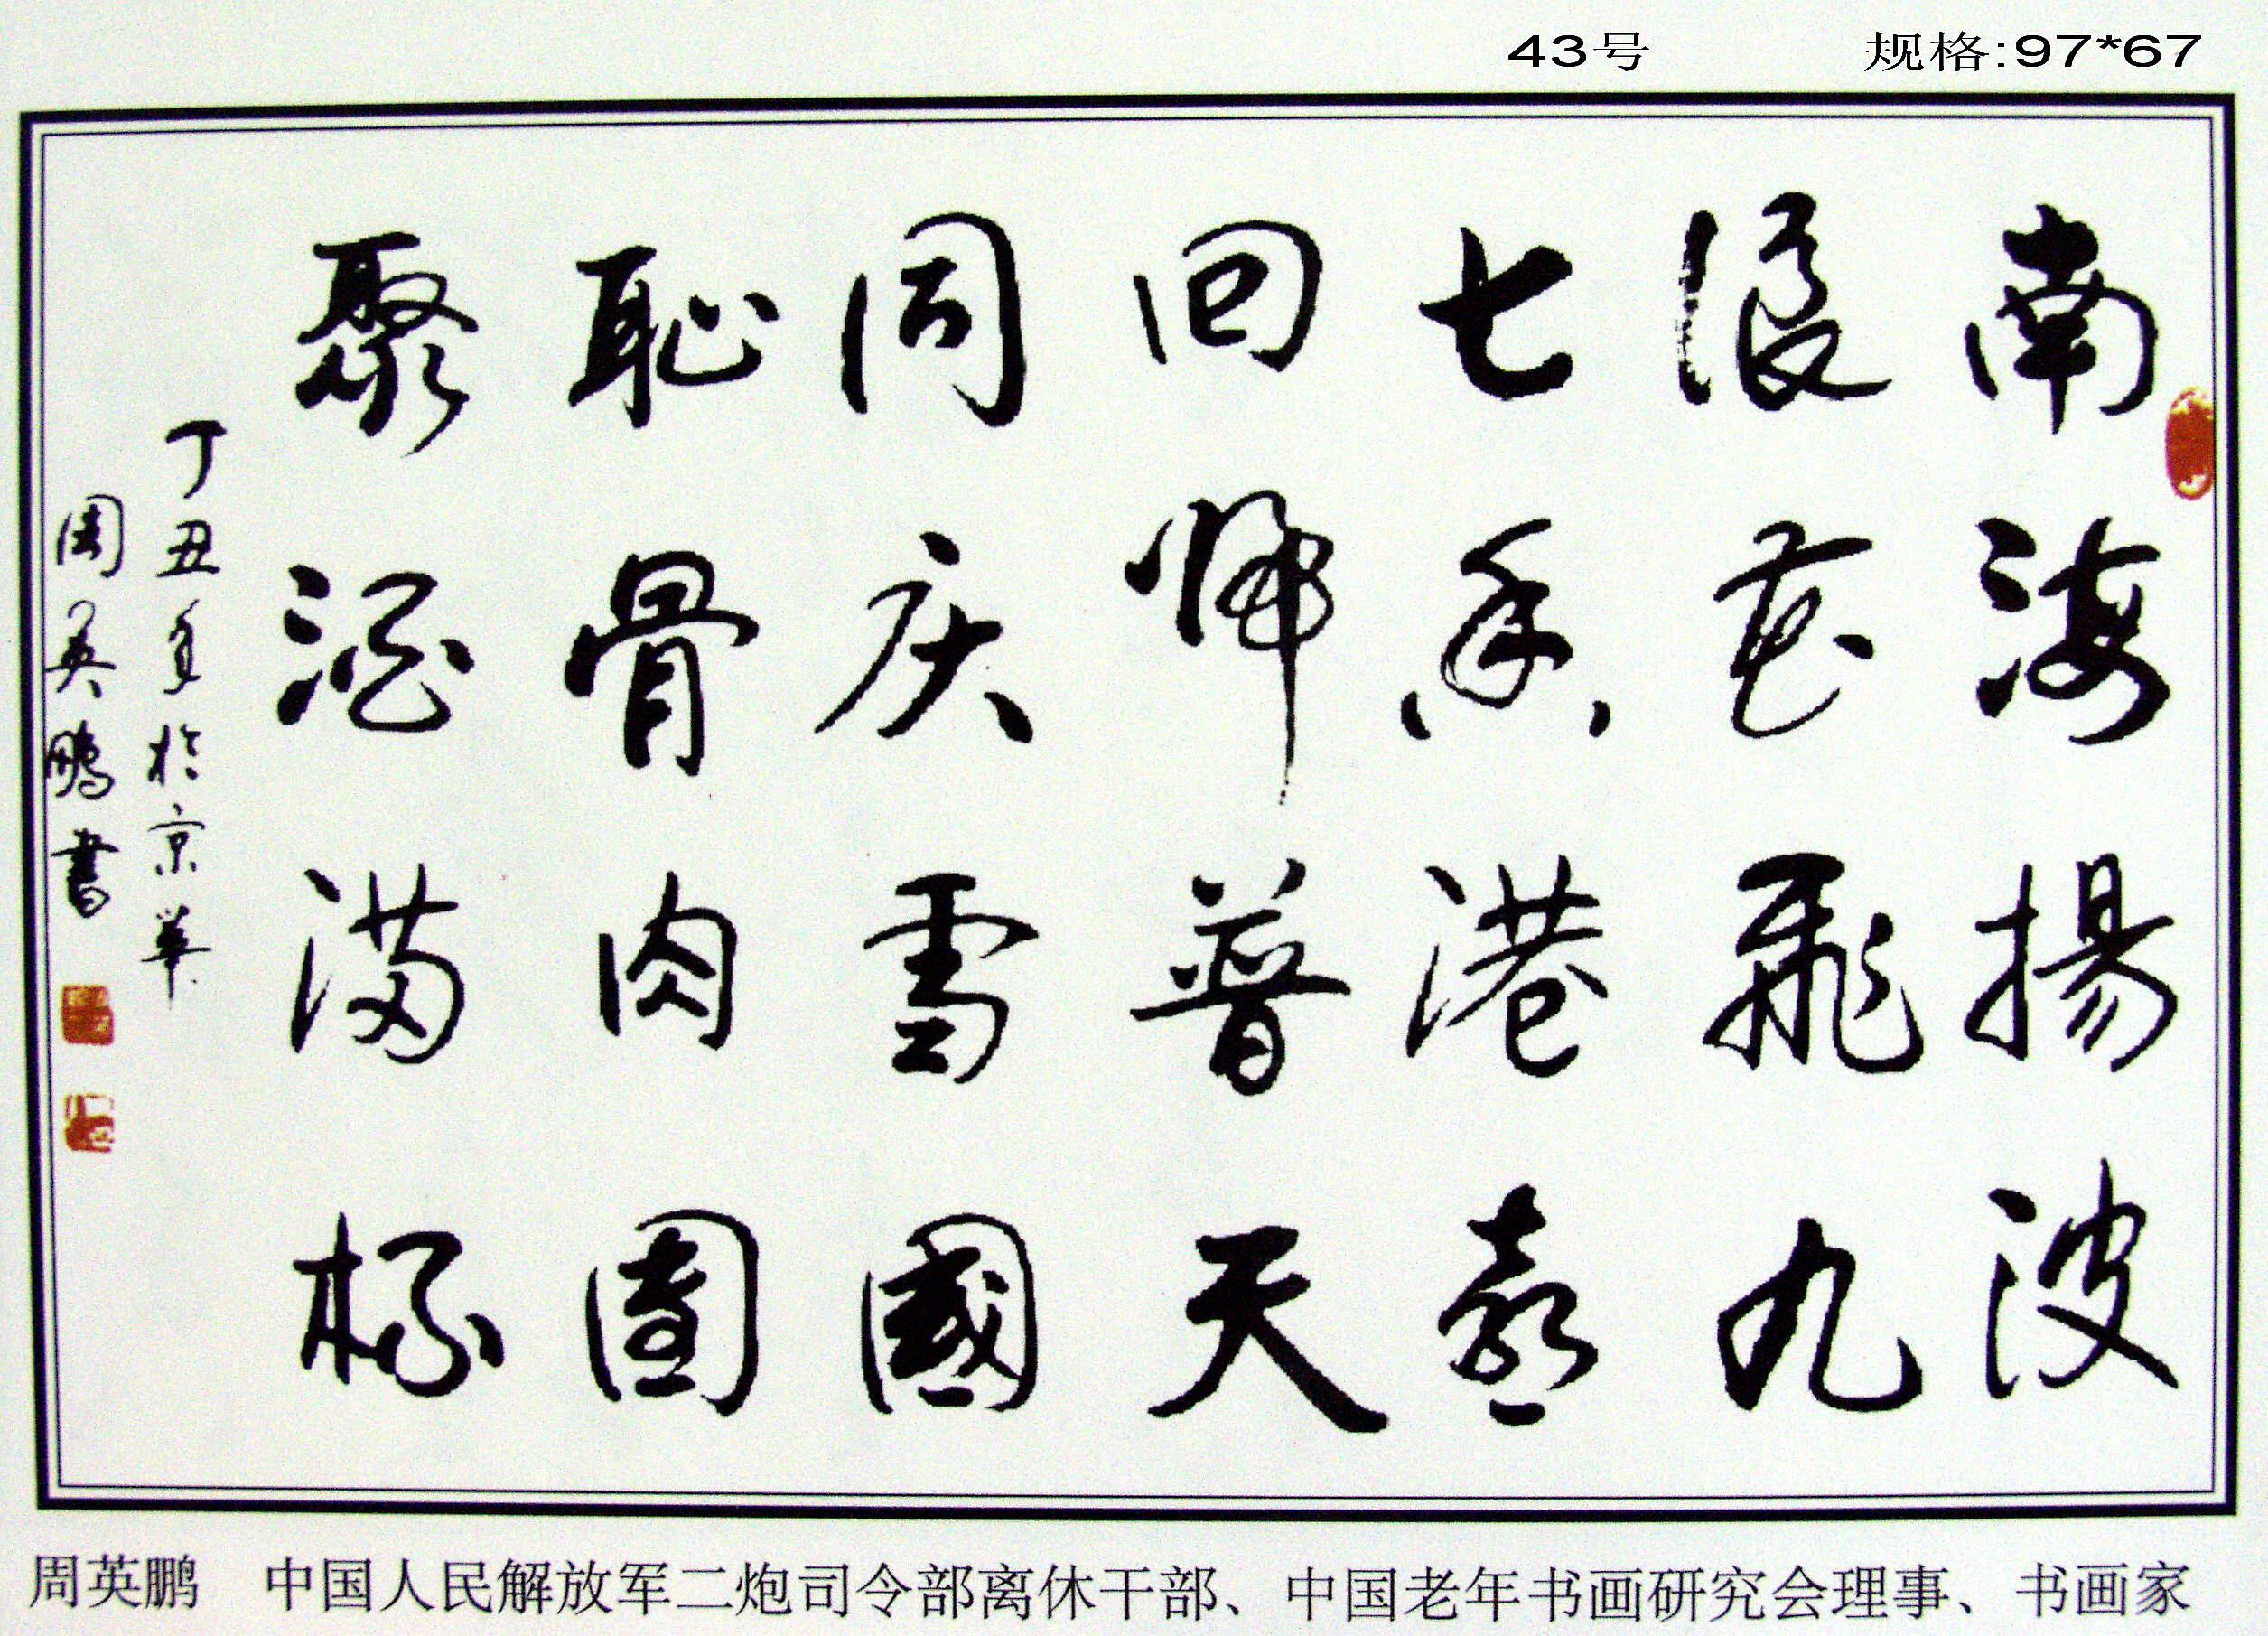 43号 规格:97*67
南海揚波
浪花飛九
七香港喜
回歸普天
同庆雪國
恥骨肉團
聚酒满杯
丁丑年於京華
周英鵬書
周英鹏 中国人民解放军二炮司令部离休干部、中国老年书画研究会理事、书画家